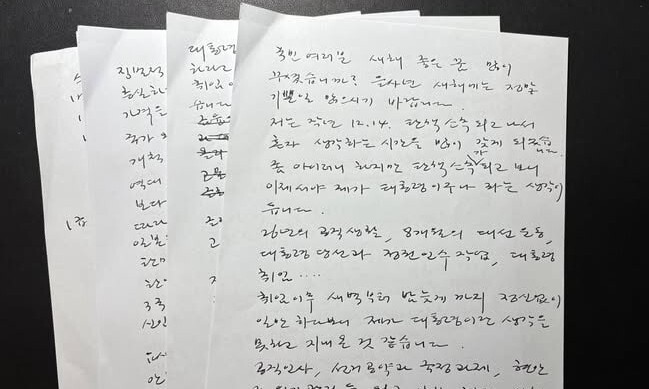 국민 여러분 새해 좋은 꿈 많이
꾸셨습니까? 을사년 새해에는 정말
기쁜 일 많으시기 바랍니다.
저는 작년 12.14. 탄핵 소추 되고 나서
혼자 생각하는 시간을 많이 갖게 되었습니다.
좀 아이러니 하지만 탄핵 소추가 되고 보니
이제서야 제가 대통령이구나 하는 생각이
듭니다.
26년의 공직생활, 8개월의 대선 운동,
대통령 당선과 정권 인수 작업, 대통령
취임 ....
취임 이후 새벽부터 밤늦게까지 정신없이
일만 하다보니 제가 대통령이란 생각을
못하고 지내온 것 같습니다.
공직인사, 선거공약과 국정과제, 현안
대통령
하라고
취임
습니다
집무
충실
가격을
주가
개척
역대
보다
따라
일본
한미
한
3국